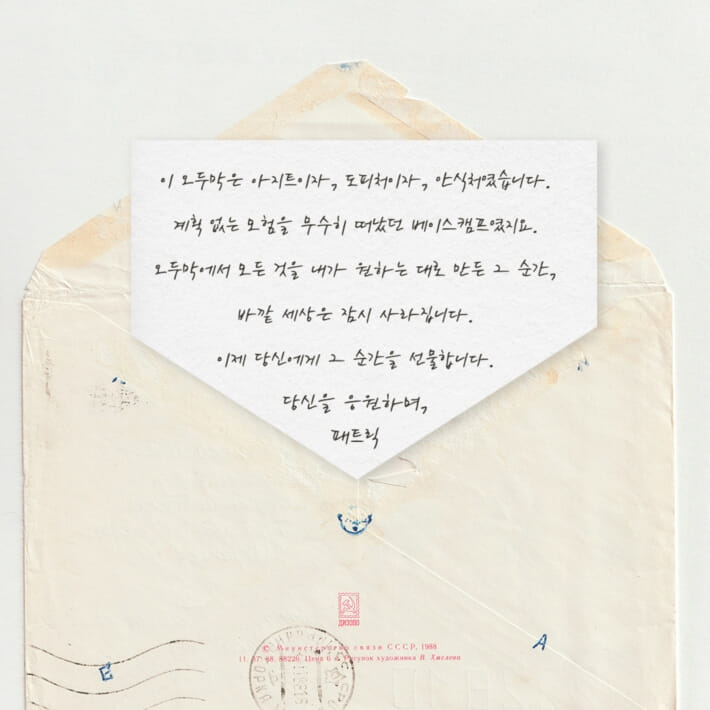 이 오두막은 아지트이자, 도피처이자, 안식처였습니다.
계획 없는 모험을 무수히 떠났던 베이스캠프였지요.
오두막에서 모든 것을 내가 원하는 대로 만든 그 순간,
바깥 세상은 잠시 사라집니다.
이제 당신에게 그 순간을 선물합니다.
당신을 응원하며,
패트릭
ДИЭПО
© Министерство связи СССР, 1988
11. 07. 88. 88226. Цена 6 к. Рисунок художника В. Хмелева
Е
А